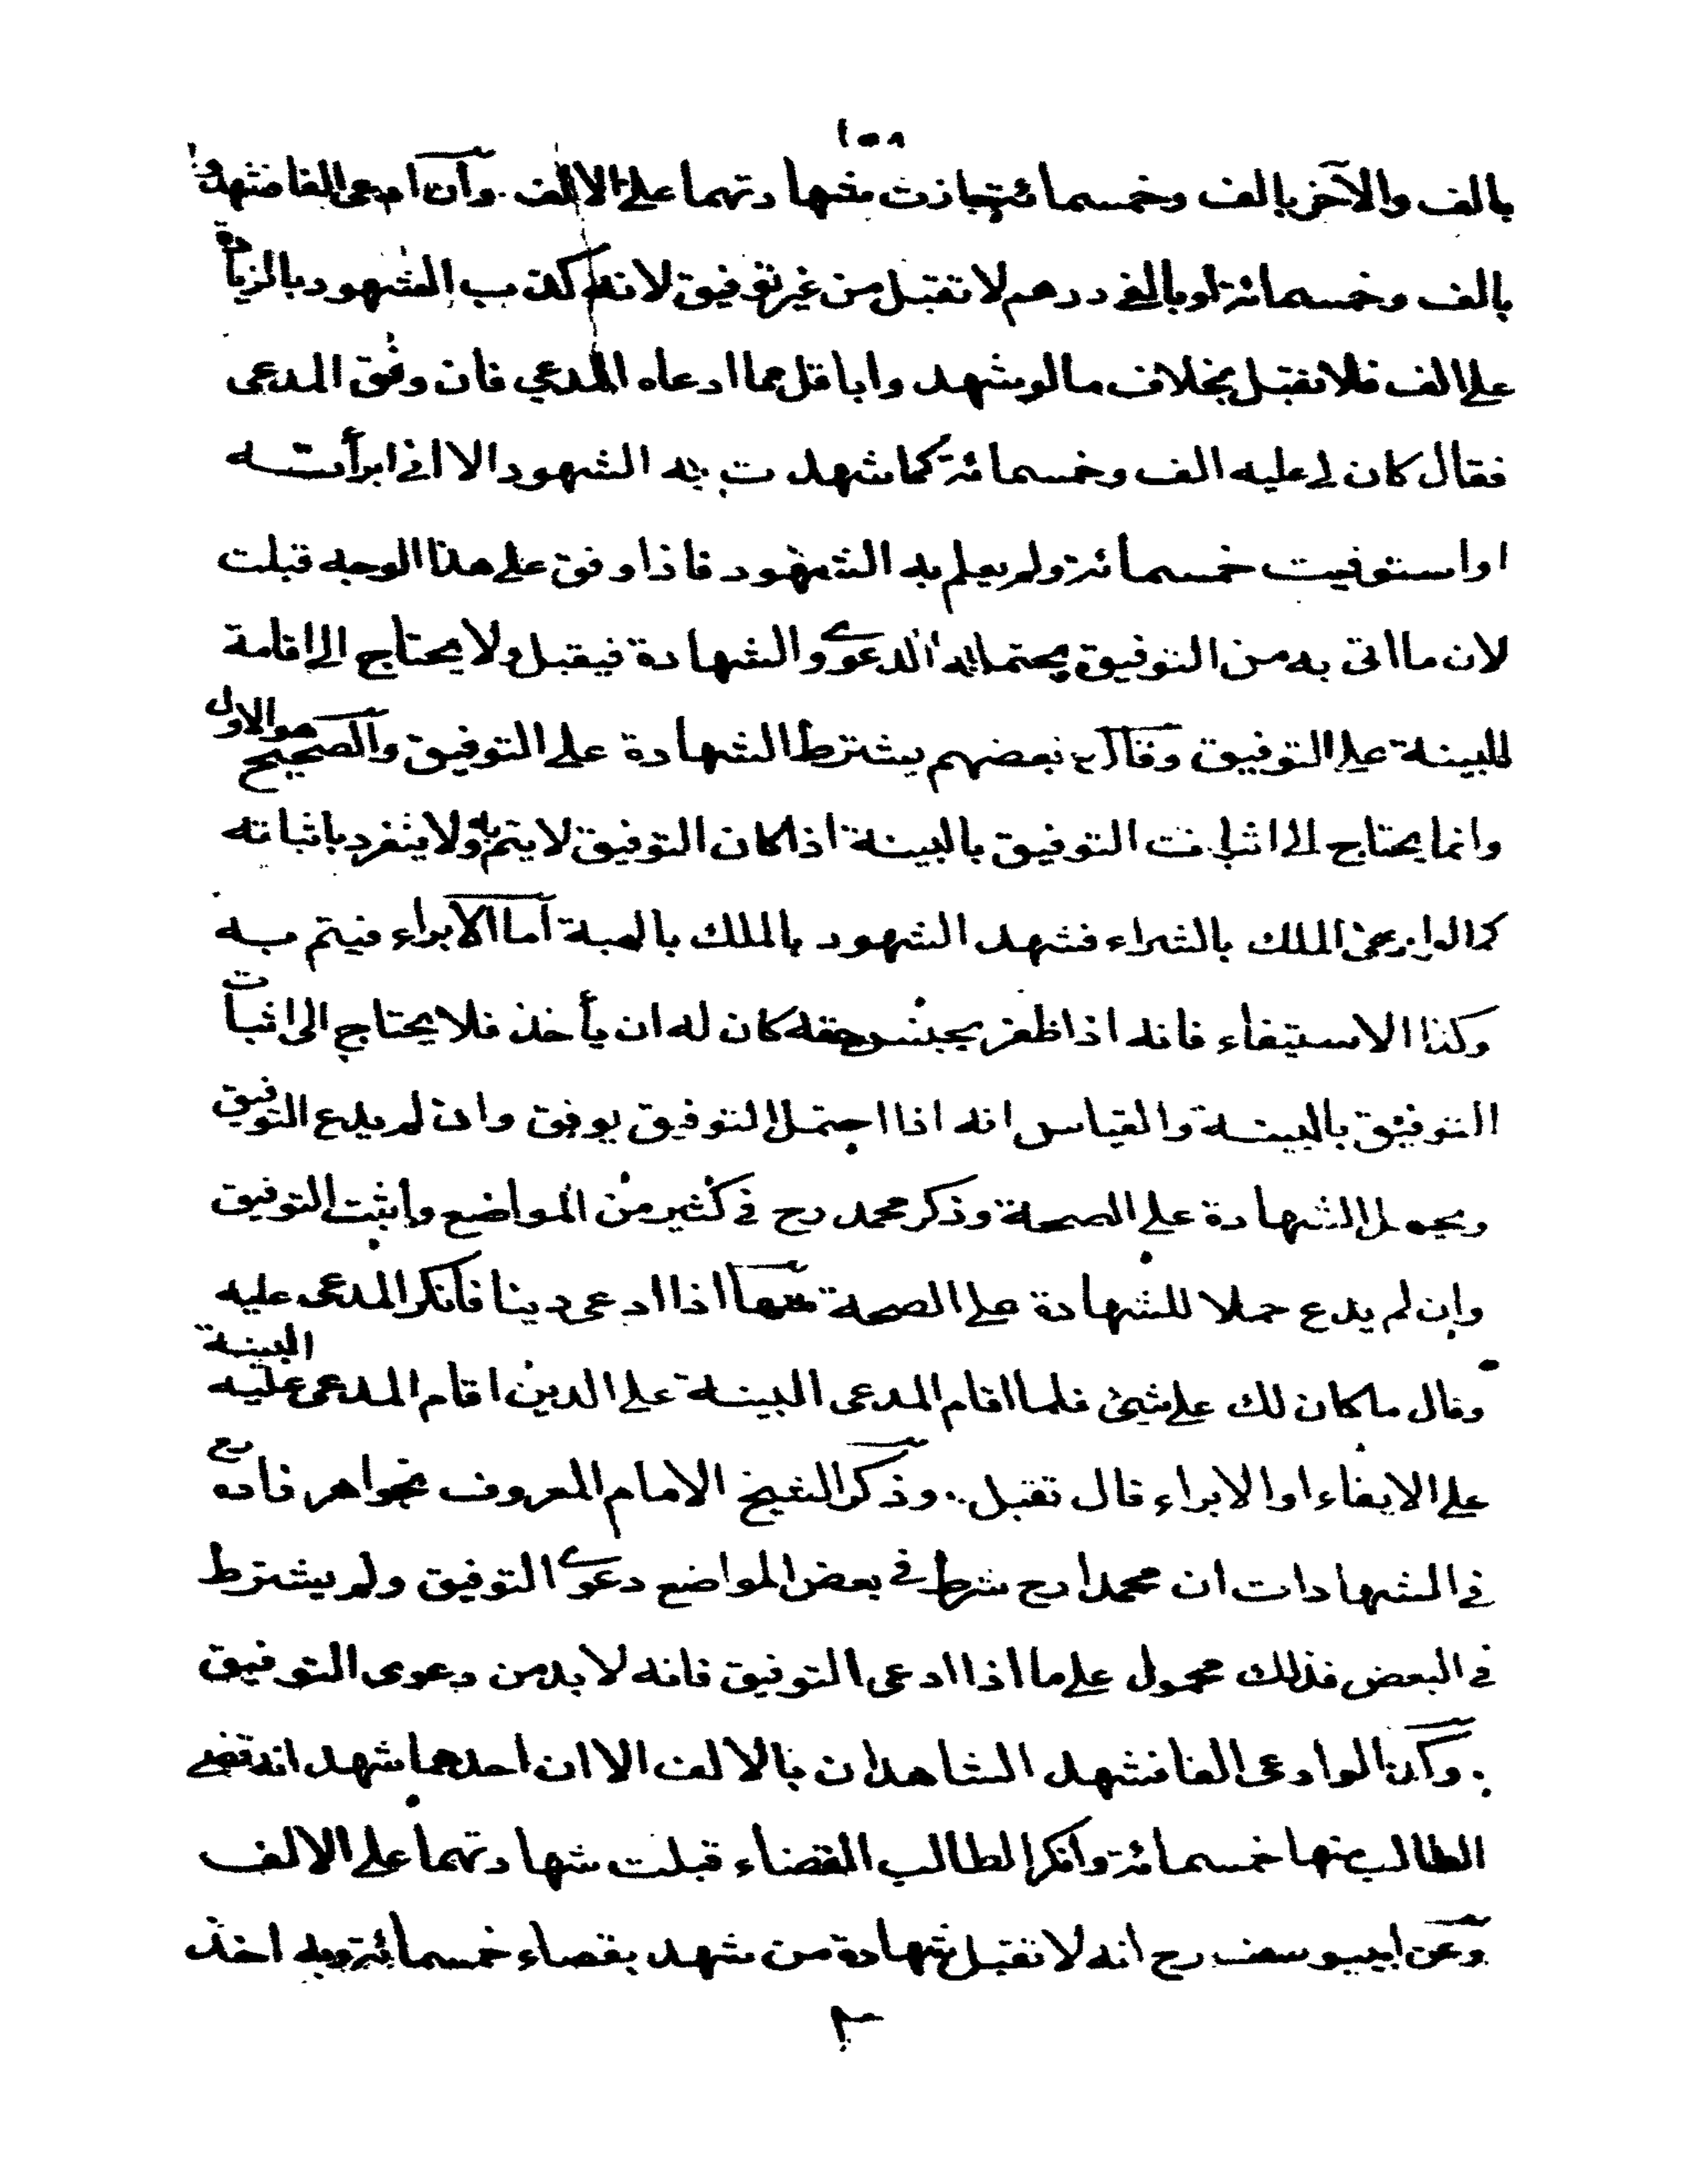 ١٥٨
بالف والآخر بالف وخمسمائة جازت شهادتهما على الالف وان ادعى الفا فشهدوا
بالف وخمسمائة او بالفى درهم لا تقبل من غير توفيق لانه كذب الشهود بالزيادة
على الف فلا تقبل بخلاف ما لو شهدوا باقل مما ادعاه المدعي فان وفق المدعى
فقال كان لي عليه الف وخمسمائة كما شهدت به الشهود الا اني ابرأته
او استوفيت خمسمائة ولم يعلم به الشهود فاذا وفق على هذا الوجه قبلت
لان ما اتى به من التوفيق يحتمله الدعوى والشهادة فيقبل ولا يحتاج الى اقامة
البينة على التوفيق وقال بعضهم يشترط الشهادة على التوفيق والصحيح هو الاول
وانما يحتاج الى اثبات التوفيق بالبينة اذا كان التوفيق لا يتم به ولا ينفرد باثباته
كما لو ادعى الملك بالشراء فشهد الشهود بالملك بالهبة اما الابراء فيتم به
وكذا الاستيفاء فانه اذا ظفر بجنس حقه كان له ان يأخذ فلا يحتاج الى اثبات
التوفيق بالبينة والقياس انه اذا احتمل التوفيق يوفق وان لم يدع التوفيق
ويحمل الشهادة على الصحة وذكر محمد رح في كثير من المواضع واثبت التوفيق
وان لم يدع حملا للشهادة على الصحة منها اذا ادعى دينا فانكر المدعى عليه
وقال ما كان لك على شئ فلما اقام المدعى البينة على الدين اقام المدعى عليه البينة
على الايفاء او الابراء قال تقبل وذكر الشيخ الامام المعروف بخواهر زاده رح
في الشهادات ان محمدا رح شرط في بعض المواضع دعوى التوفيق ولم يشترط
في البعض فذلك محمول على ما اذا ادعى التوفيق فانه لا بد من دعوى التوفيق
وكذا لو ادعى الفا فشهد الشاهدان بالالف الا ان احدهما شهد انه قضى
الطالب منها خمسمائة وانكر الطالب القضاء قبلت شهادتهما على الالف
وعن ابي يوسف رح انه لا تقبل شهادة من شهد بقضاء خمسمائة وبه اخذ